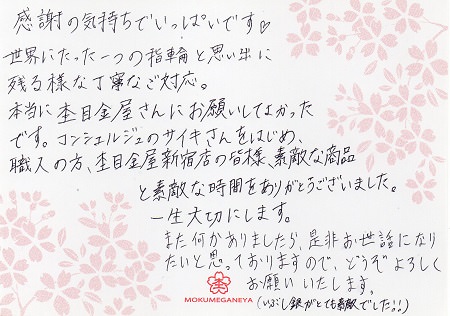 感謝の気持ちでいっぱいです♡
世界にたった一つの指輪と思い出に
残る様な丁寧なご対応。
本当に杢目金屋さんにお願いしてよかった
です。コンシェルジュのサイキさんをはじめ、
職人の方、杢目金屋新宿店の皆様、素敵な商品
と素敵な時間をありがとうございました。
一生大切にします。
また何かありましたら、是非お世話になり
たいと思っておりますので、どうぞよろしく
お願いいたします。
(いぶし銀がとても素敵でした!!)
MOKUMEGANEYA